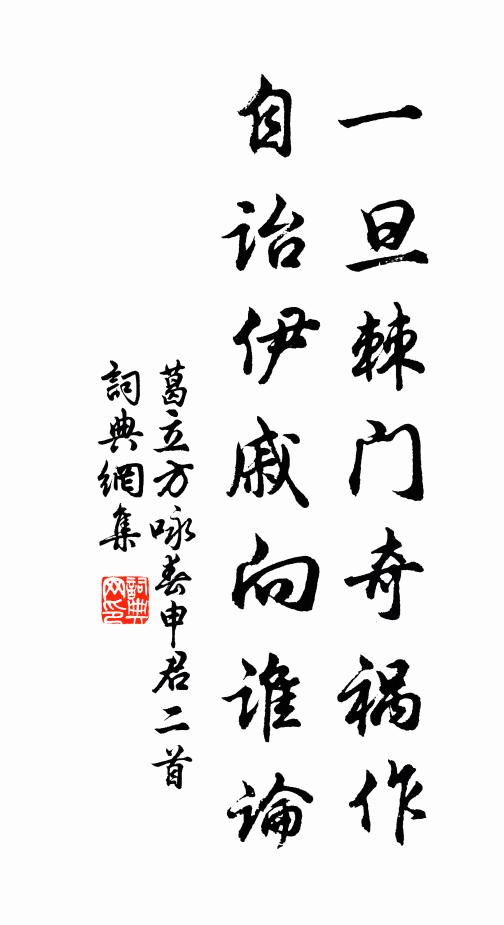 一旦棘门奇祸作
自诒伊戚向谁论
葛立方咏春申君二首
詞典網集
詞典网印